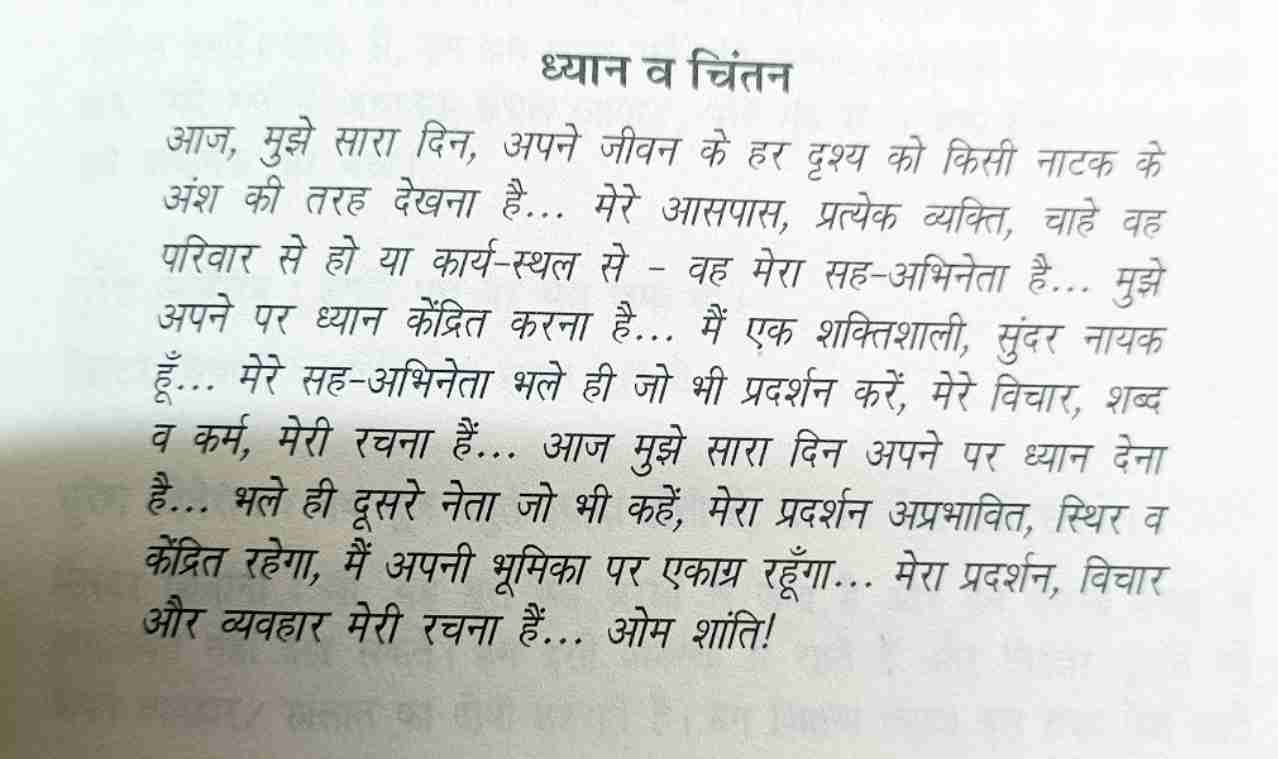 ध्यान व चिंतन
आज, मुझे सारा दिन, अपने जीवन के हर दृश्य को किसी नाटक के
अंश की तरह देखना है... मेरे आसपास, प्रत्येक व्यक्ति, चाहे वह
परिवार से हो या कार्य-स्थल से – वह मेरा सह-अभिनेता है... मुझे
अपने पर ध्यान केंद्रित करना है... मैं एक शक्तिशाली, सुंदर नायक
हूँ... मेरे सह-अभिनेता भले ही जो भी प्रदर्शन करें, मेरे विचार, शब्द
व कर्म, मेरी रचना हैं... आज मुझे सारा दिन अपने पर ध्यान देना
है... भले ही दूसरे नेता जो भी कहें, मेरा प्रदर्शन अप्रभावित, स्थिर व
केंद्रित रहेगा, मैं अपनी भूमिका पर एकाग्र रहूँगा... मेरा प्रदर्शन, विचार
और व्यवहार मेरी रचना हैं... ओम शांति!